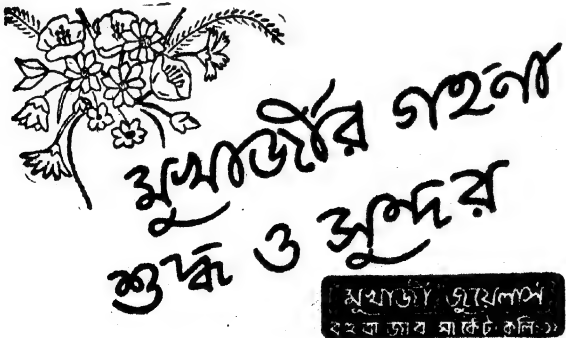 মুখার্জীর গহনা
শুদ্ধ ও সুন্দর
মুখার্জী জুয়েলার্স
বহুবাজার মার্কেট কলি-১২